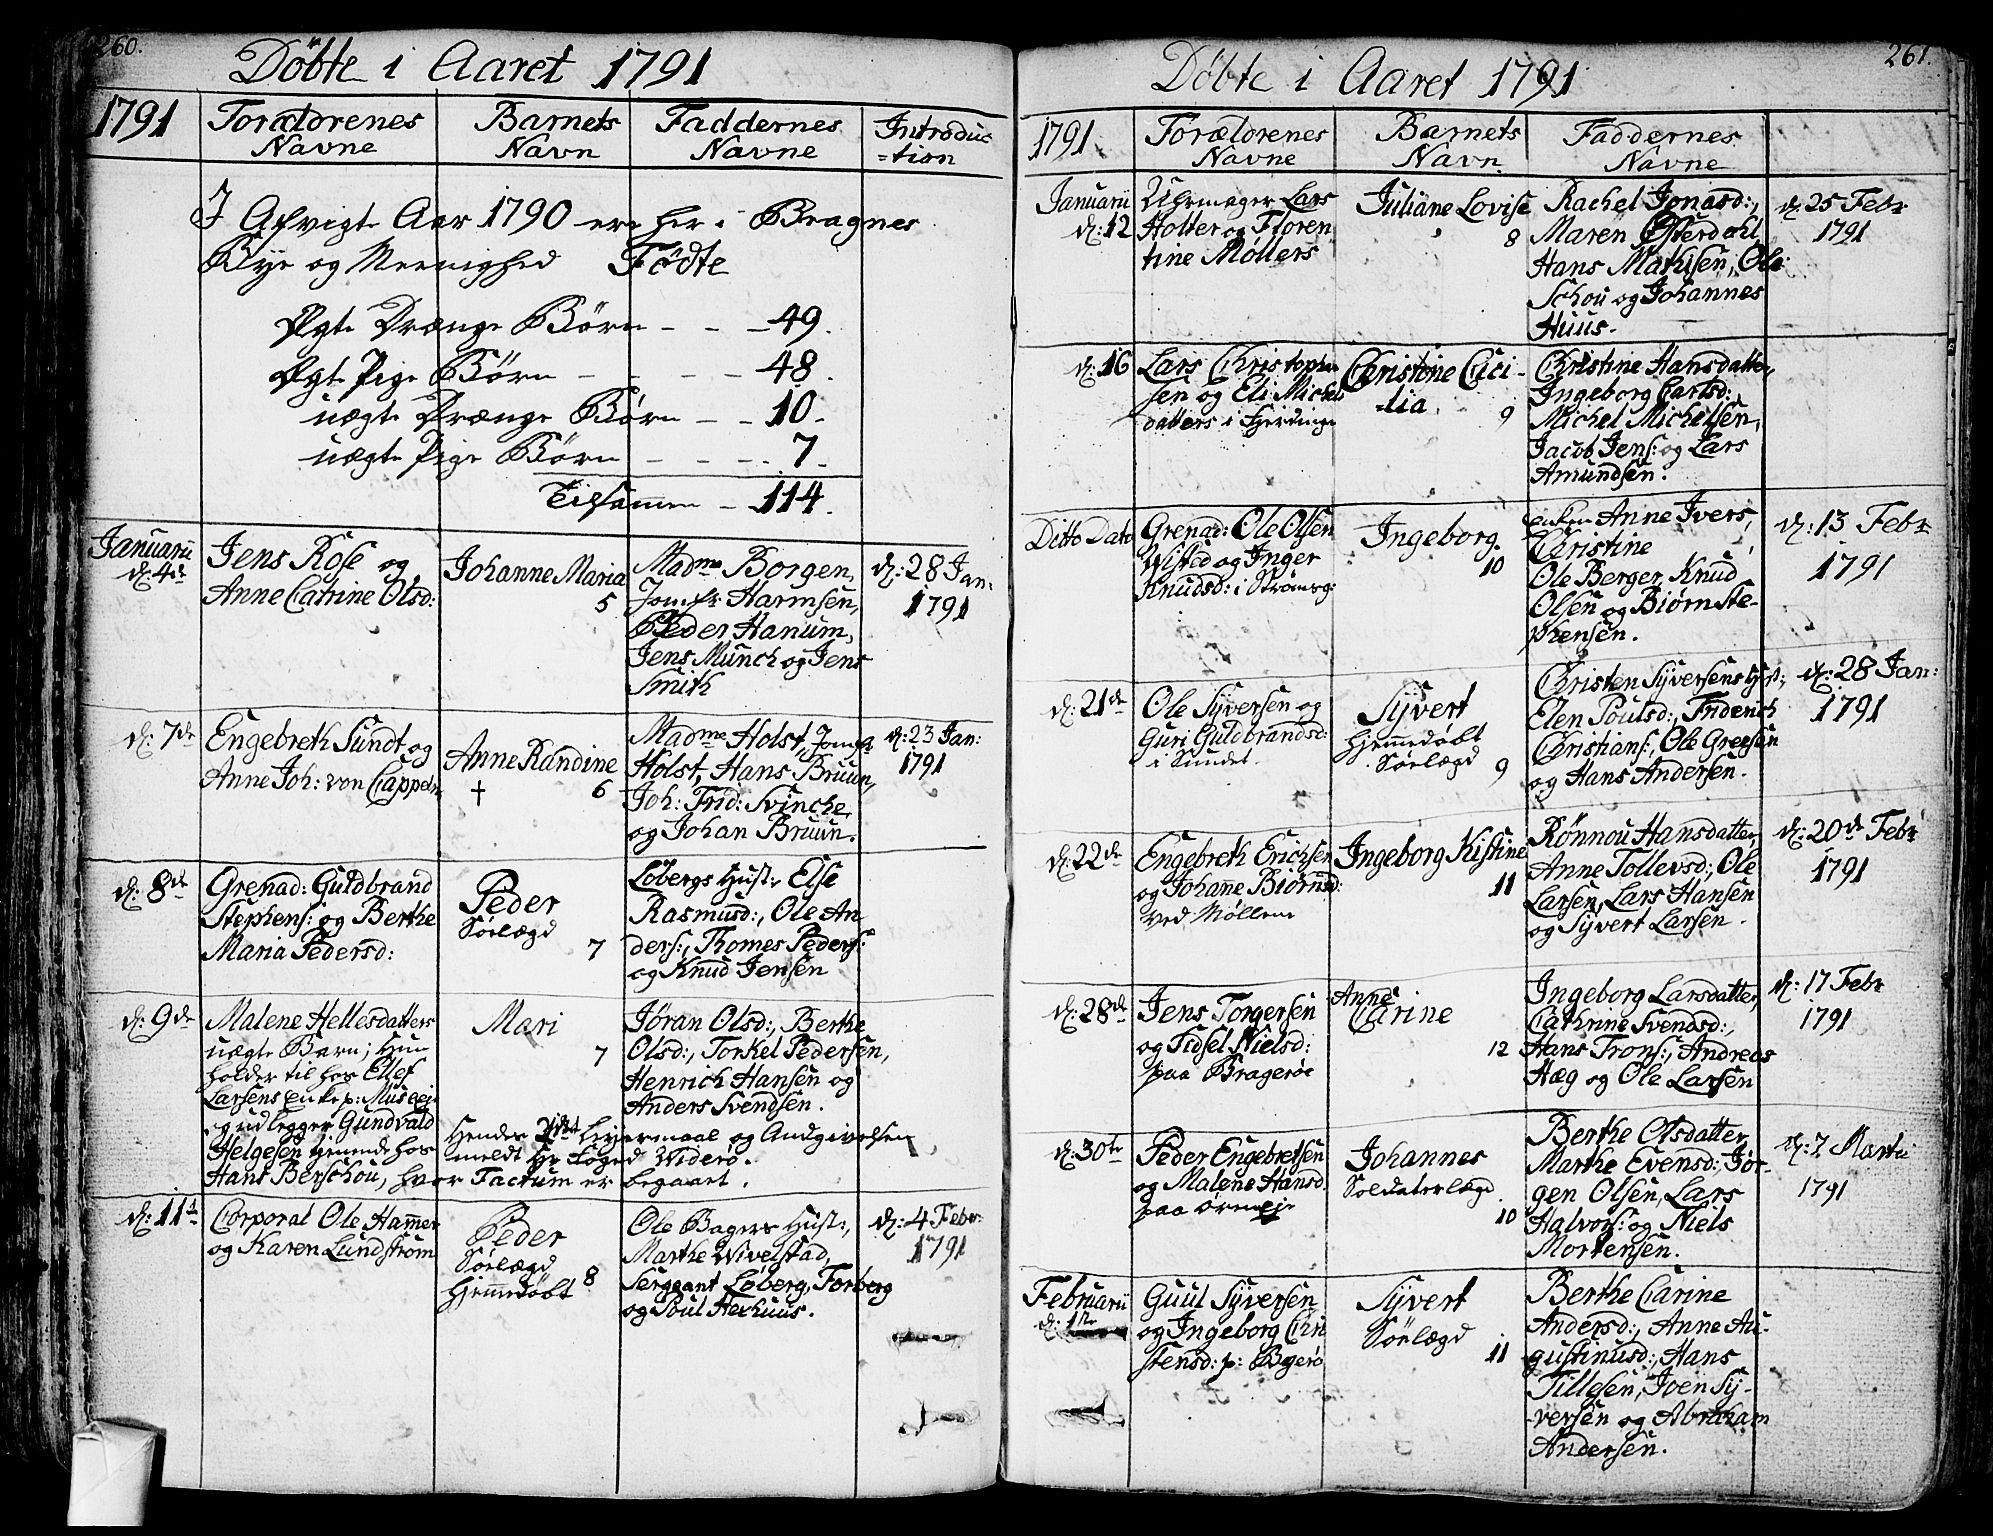 260.
Döbte i Aaret 1791
1791
Forældrenes
Navne
Barnets
Navn
Faddernes
Navne
Introduc
=tion
I Afvigte Aar 1790 ere her i Bragnes
Bye og Meenighed Födte
Ægte Drænge Börn - - - 49.
Ægte Pige Börn - - - - 48.
uægte Drænge Börn - - 10.
uægte Pige Börn - - - - 7.
Tilsamen - 114.
Januarii
d: 4de
Jens Rose og
Anne Catrine Olsd:
Johanne Maria
5
Madme Borgen,
Jomfr: Harmsen,
Peder Hanum,
Jens Munch og Jens
Smith
d: 28 Jan:
1791
d: 7de
Engebreth Sundt og
Anne Joh: von Cappeln
Anne Randine
† 6
Madme Holst, Jomfr
Holst, Hans Bruun,
Joh: Frid: Svincke
og Johan Bruun.
d: 23 Jan:
1791
d: 8de
Grenad: Guldbrand
Stephens: og Berthe
Maria Pedersd:
Peder
Sörlægd
7
Löbergs Hust: Else
Rasmusd:, Ole An
ders:, Thomes Peders:
og Knud Jensen
d: 9de
Malene Hellesdatters
uægte Barn; Hun
holder til hos Ellef
Larsens Enke p: Museej:
og udlegger Gundvald
Helgesen tjenende hos
Hans Berschou, hvor Factum er begaaet.
Mari
7
Jöran Olsd:, Berthe
Olsd:, Torkel Pedersen,
Henrich Hansen og
Anders Svendsen.
Hendes 2det Leyermaal og Andgivelsen
meldt Hr Foged Widerö.
d: 11te
Corporal Ole Hammer
og Karen Lundström
Peder
Sörlægd
Hjemedöbt 8
Ole Bagers Hust:,
Marthe Wivelstad,
Sergeant Löberg, Forberg
og Poul Herhuus.
d: 4 Febr:
1791
261.
Döbte i Aaret 1791
1791
Forældrenes
Navne
Barnets
Navn
Faddernes
Navne
Januarii
d: 12
Uhrmager Lars
Holter og Floren
tine Möllers
Juliane Lovise
8
Rachel Jonasd:,
Maren Österdahl
Hans Mathisen, Ole
Schou og Johannes
Huus.
d: 25 Febr
1791
d: 16
Lars Christophe
sen og Eli Michels
datters i Fjerdinge
Christine Ceci-
=lia. 9
Christine Hansdatter,
Ingeborg Carlsd:
Michel Michelsen,
Jacob Jens: og Lars
Amundsen.
Ditto Dato
Grenad: Ole Olsen
Wistee og Inger
Knudsd: i Strömsg:
Ingeborg
10
enken Anne Ivers,
Christine
Ole Berger, Knud
Olsen og Biörn Ste-
phensen.
d: 13 Febr
1791
d: 21de
Ole Syversen og
Guri Guldbrandsd:
i Sundet.
Syvert
Hjemedöbt
Sörlægd 9
Christen Syversens Hust:,
Elen Poulsd:, Friderich
Christians:, Ole Greesen
og Hans Andersen.
d: 28 Jan:
1791
d: 22de
Engebreth Erichsen
og Johane Biörnsd:
ved Möllene
Ingeborg Kistine
11
Rönnou Hansdatter,
Anne Tollevsd:, Ole
Larsen, Lars Hansen
og Syvert Larsen.
d: 20de Febr
1791
d: 28de
Jens Torgersen
og Tidsel Nielsd:
paa Brageröe
Anne
Carine
12
Ingeborg Larsdatter,
Cathrine Svendsd:,
Hans Trons:, Andreas
Hæg og Ole Larsen
d: 17 Febr
1791
d: 30te
Peder Engebretsen
og Malene Hansd.
paa örneeje
Johannes
Soldaterlægd.
10
Berthe Olsdatter
Marthe Evensd:, Jör-
gen Olsen, Lars
Halvors: og Niels
Mortensen.
d: 7 Martii
1791
Februarii
d: 1te
Guul Syversen
og Ingeborg Chri
stensd: p: Bgerö
Syvert
Sörlægd
11
Berthe Carine
Andersd:, Anne Au-
gustinusd:, Hans
Tillesen, Iven Sy-
versen og Abraham
Andersen.